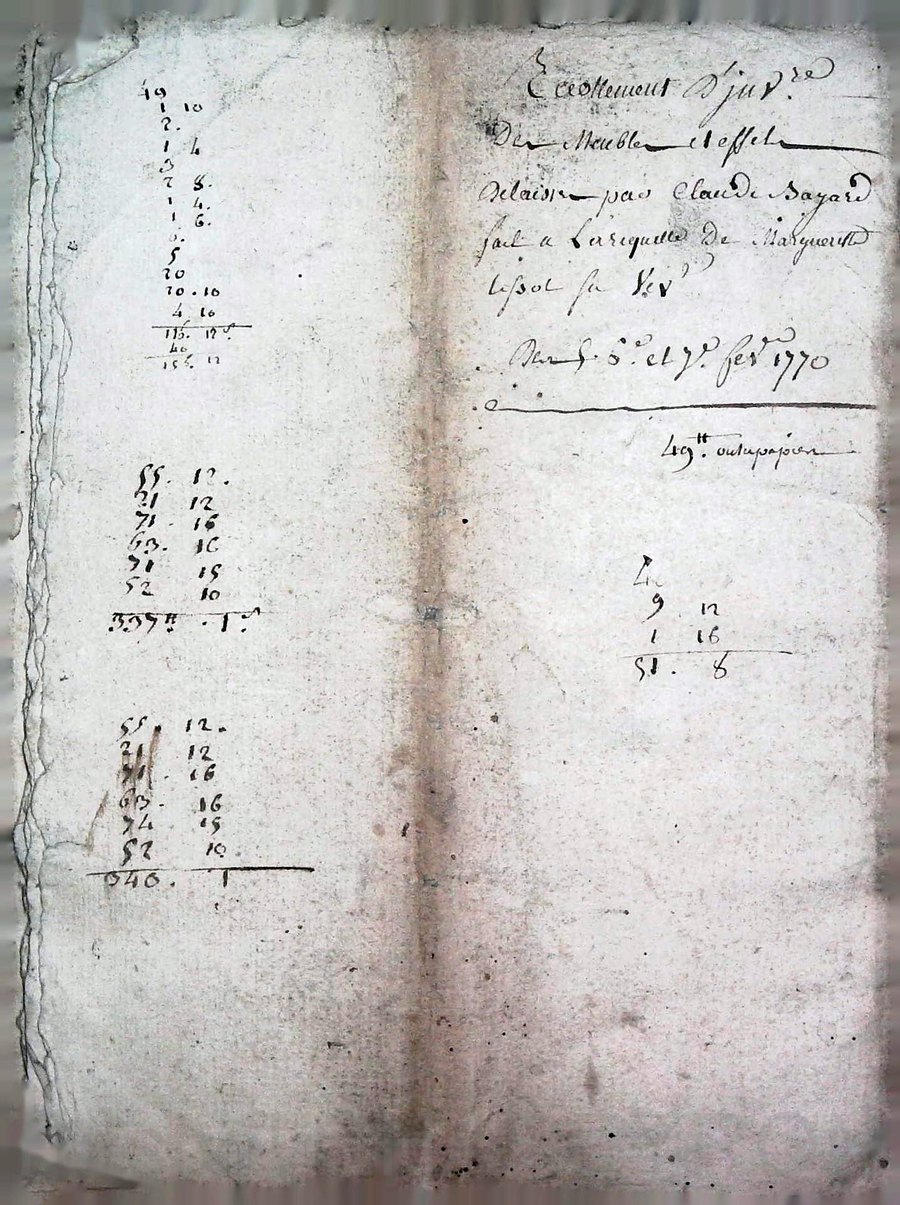 49
1 10
2.
1 4
3
2 8.
1 4.
1 6.
5
20
20 . 10
4 10
115. 12 s
40
155. 12
55. 12.
21 12
71 . 16
63. 16
71 15
52 10
337 tt . 1 s
55 . 12 .
21 12
71 . 16
63 . 16
74 15
52 10
340 . 1
Recollement D'jnv.re
Des Meubles et effets
Delaissés par Claude Bayard
fait a La requette De Margueritte
tissot sa Vev
Des 5. 6.e et 7.e fev.r 1770
49 tt. outre papier
4
9 12
1 16
51 . 8